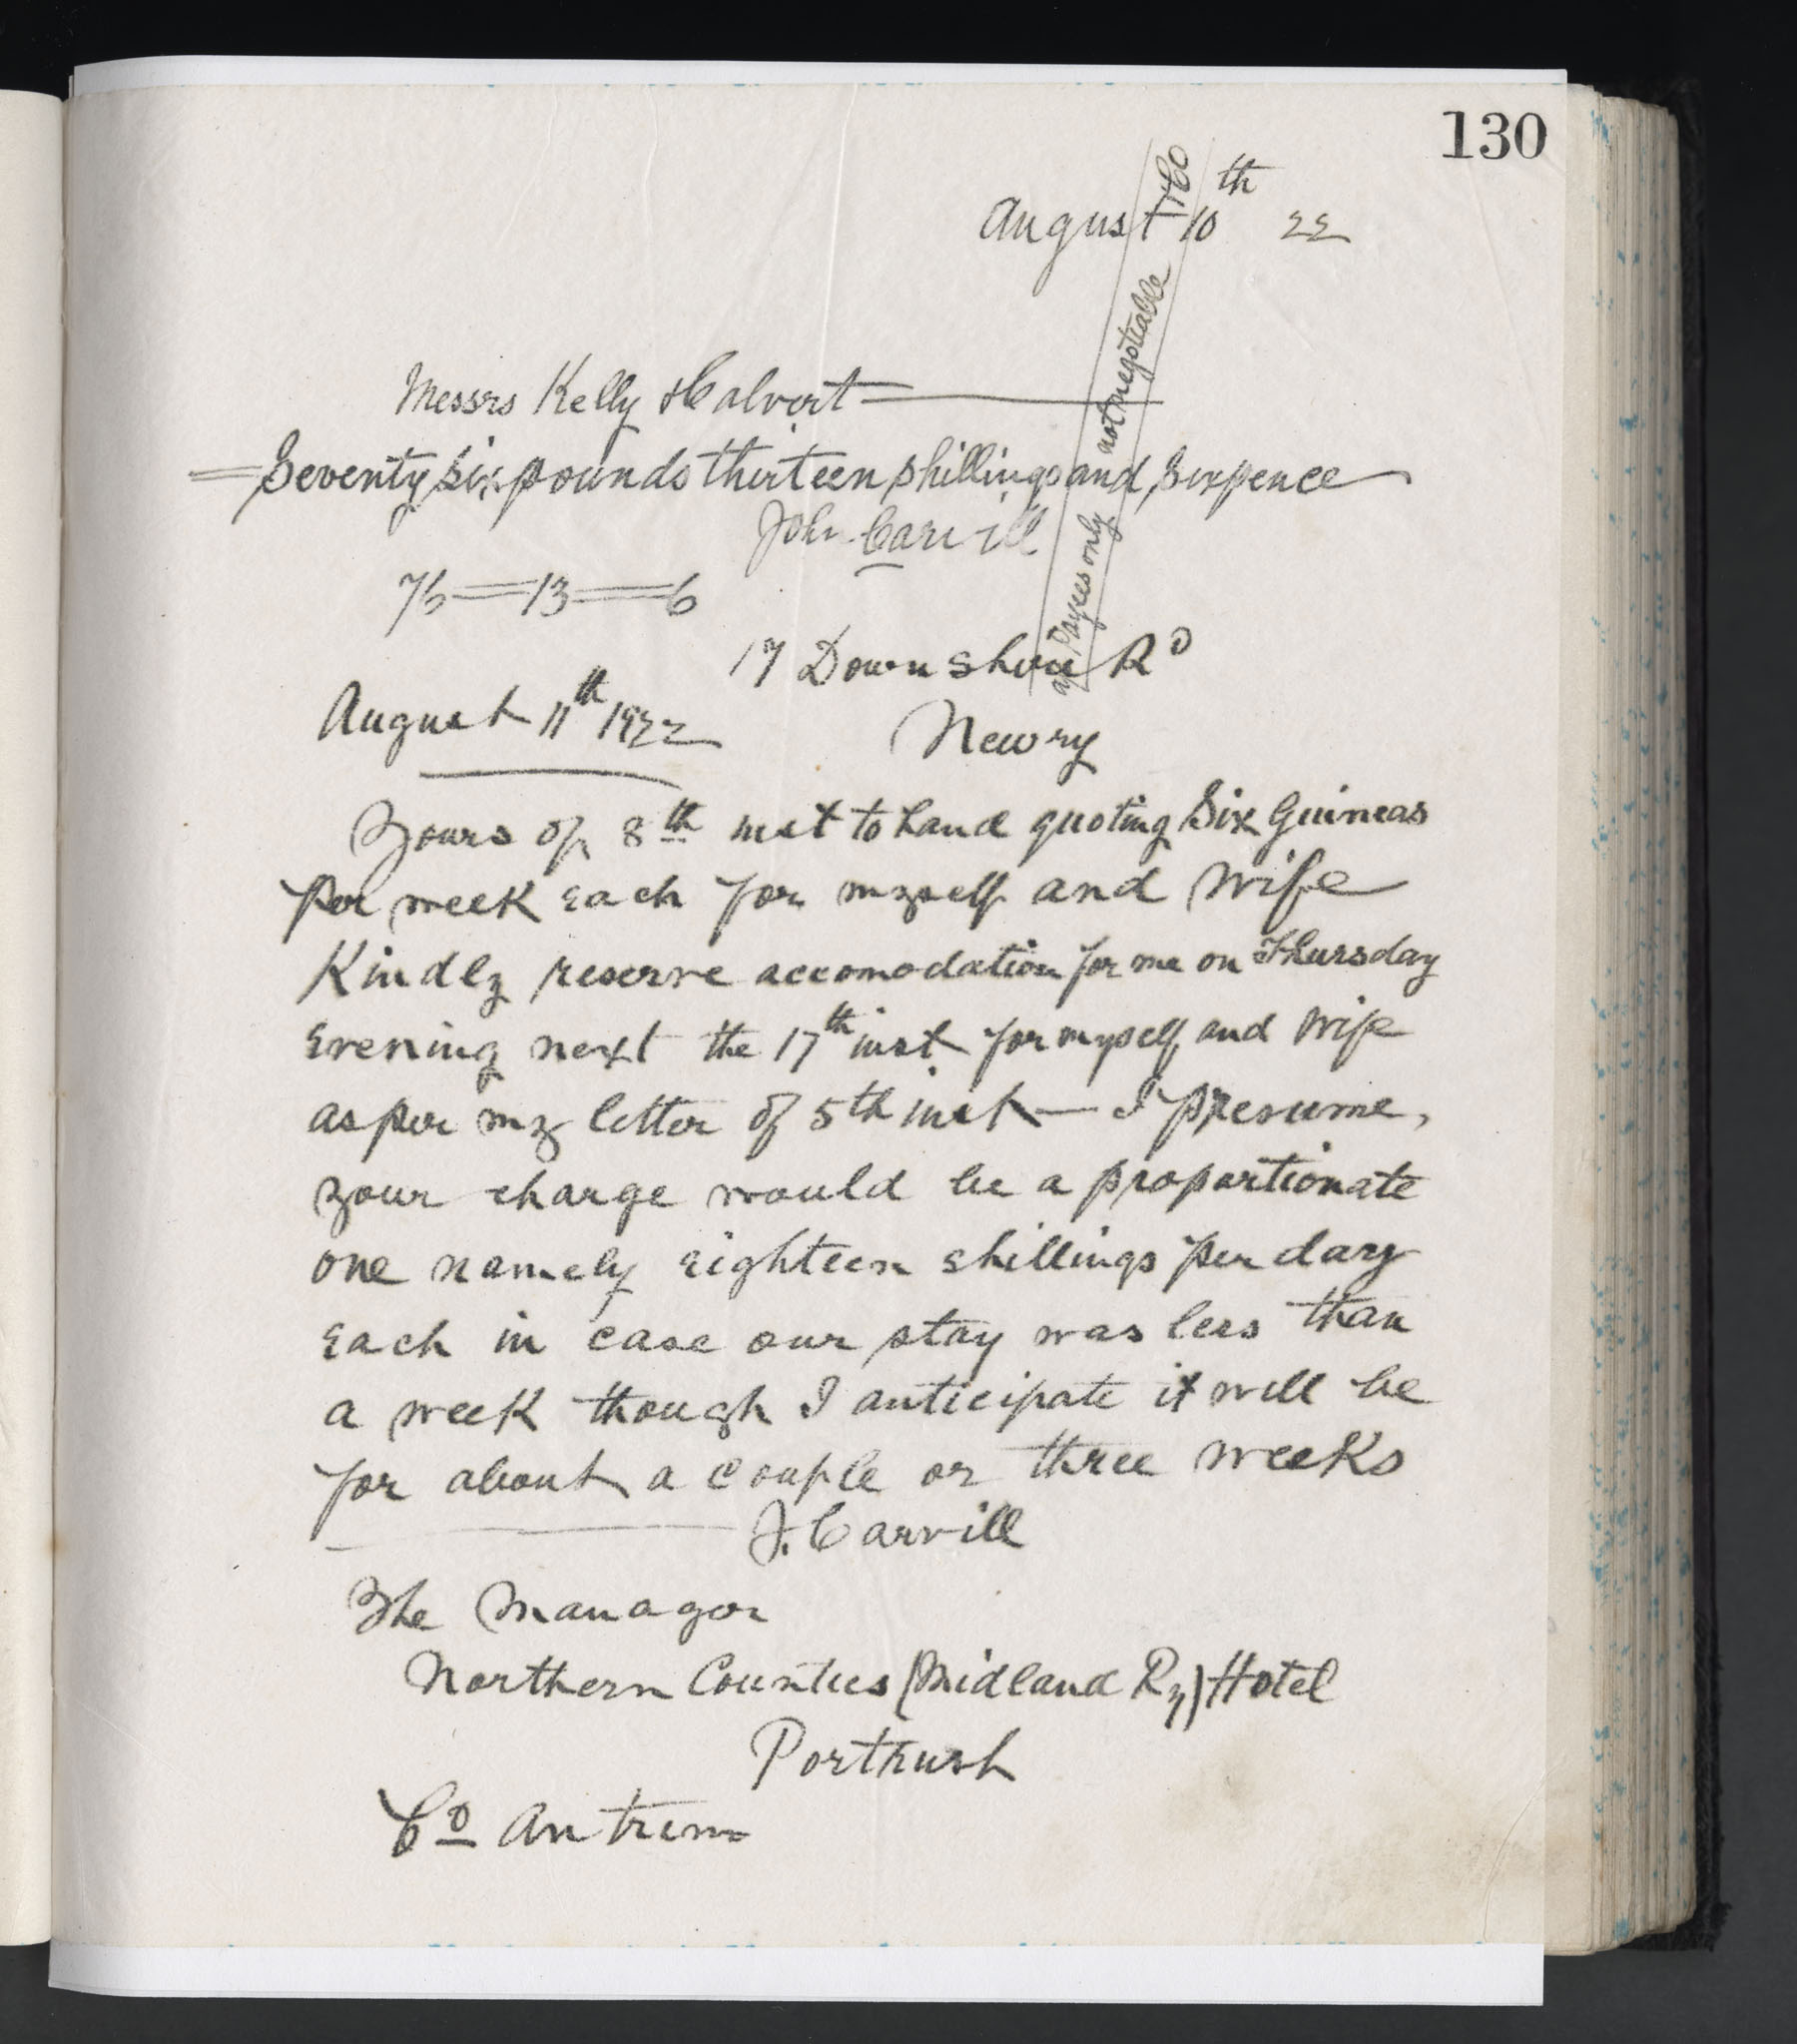 130
August 10th 22
& Co
not negotiable
Payees only
Messrs Kelly & Calvert
Seventy six pounds thirteen shillings and sixpence
John Carvill
76 = 13 = 6
17 Downshire Rd
August 11th 1922
Newry
Yours of 8th inst to hand quoting Six Guineas
per week each for myself and wife
Kindly reserve accomodation for me on Thursday
Evening next the 17th inst for myself and wife
as per my letter of 5th inst — I presume,
your charge would be a proportionate
one namely eighteen shillings per day
each in case our stay was less than
a week though I anticipate it will be
for about a couple or three weeks
J. Carvill
The Manager
Northern Counties (Midland Ry) Hotel
Portrush
Co Antrim